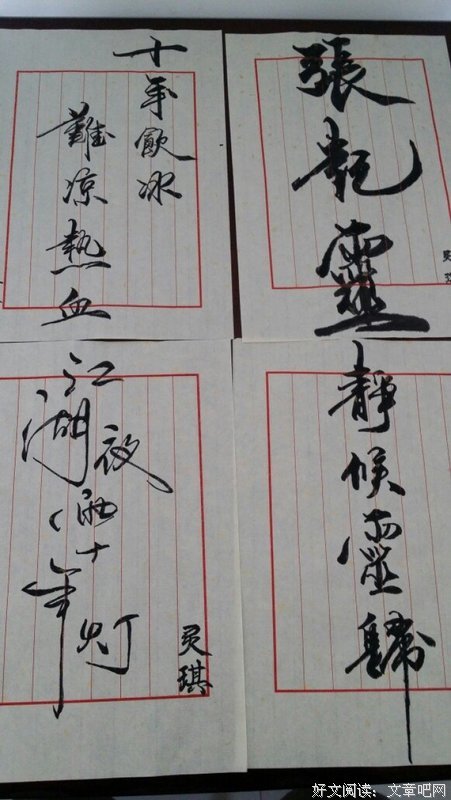 十年飲冰
難凉熱血
張起靈
灵琪
江湖夜雨十年灯
灵琪
靜候靈歸
好文阅读:文章吧网